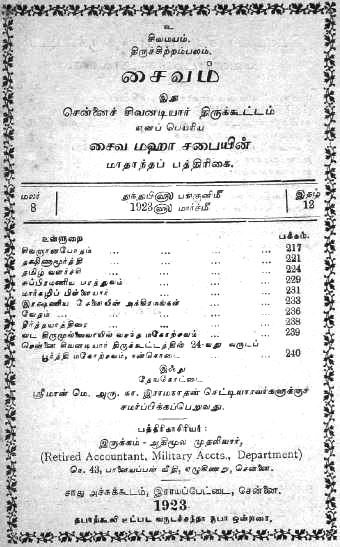 உ
சிவமயம்.
திருச்சிற்றம்பலம்.
சைவம்
இது
சென்னைச் சிவனடியார் திருக்கூட்டம்
எனப் பெயரிய
சைவ மஹா சபையின்
மாதாந்தப் பத்திரிகை.
மலர் 8
துந்துபி௵ பங்குனிமீ
1923௵ மார்ச்மீ
இதழ் 12
உள்ளுறை பக்கம்.
சிவஞானபோதம் ... ... ... ... 217
தக்ஷிணாமூர்த்தி ... ... ... ... 221
தமிழ் வளர்ச்சி ... ... ... ... 224
சுப்பிரமணிய பரத்துவம் ... ... ... 229
மார்கழிப் பிள்ளையார் ... ... ... 231
இரக்ஷணிய சேனையின் அக்கிரமங்கள் ... ... 233
வேதம் ... ... ... ... 236
தீர்த்தயாத்திரை ... ... ... ... 238
வட திருமுல்லைவாயில் வசந்த மகோற்சவம் ... ... 239
சென்னை சிவனடியார் திருக்கூட்டத்தின் 24-வது வருடப்
பூர்த்தி மகோற்சவம், நன்கொடை ... ... 240
இஃது
தேவகோட்டை
ஸ்ரீமான் மெ. அரு. நா. இராமநாதன் செட்டியாரவர்களுக்குச்
சமர்ப்பிக்கப்பெறுவது.
பத்திரிகாசிரியர்:
இருக்கம் - ஆதிமூல முதலியார்,
(Retired Accountant, Military Accts., Department)
நெ. 43, பாளையப்பன் வீதி, எழுகிணறு, சென்னை.
சாது அச்சுக்கூடம், இராயப்பேட்டை, சென்னை.
1923
தபாற்கூலி உட்பட வருடச்சந்தா ரூபா ஒன்றரை.